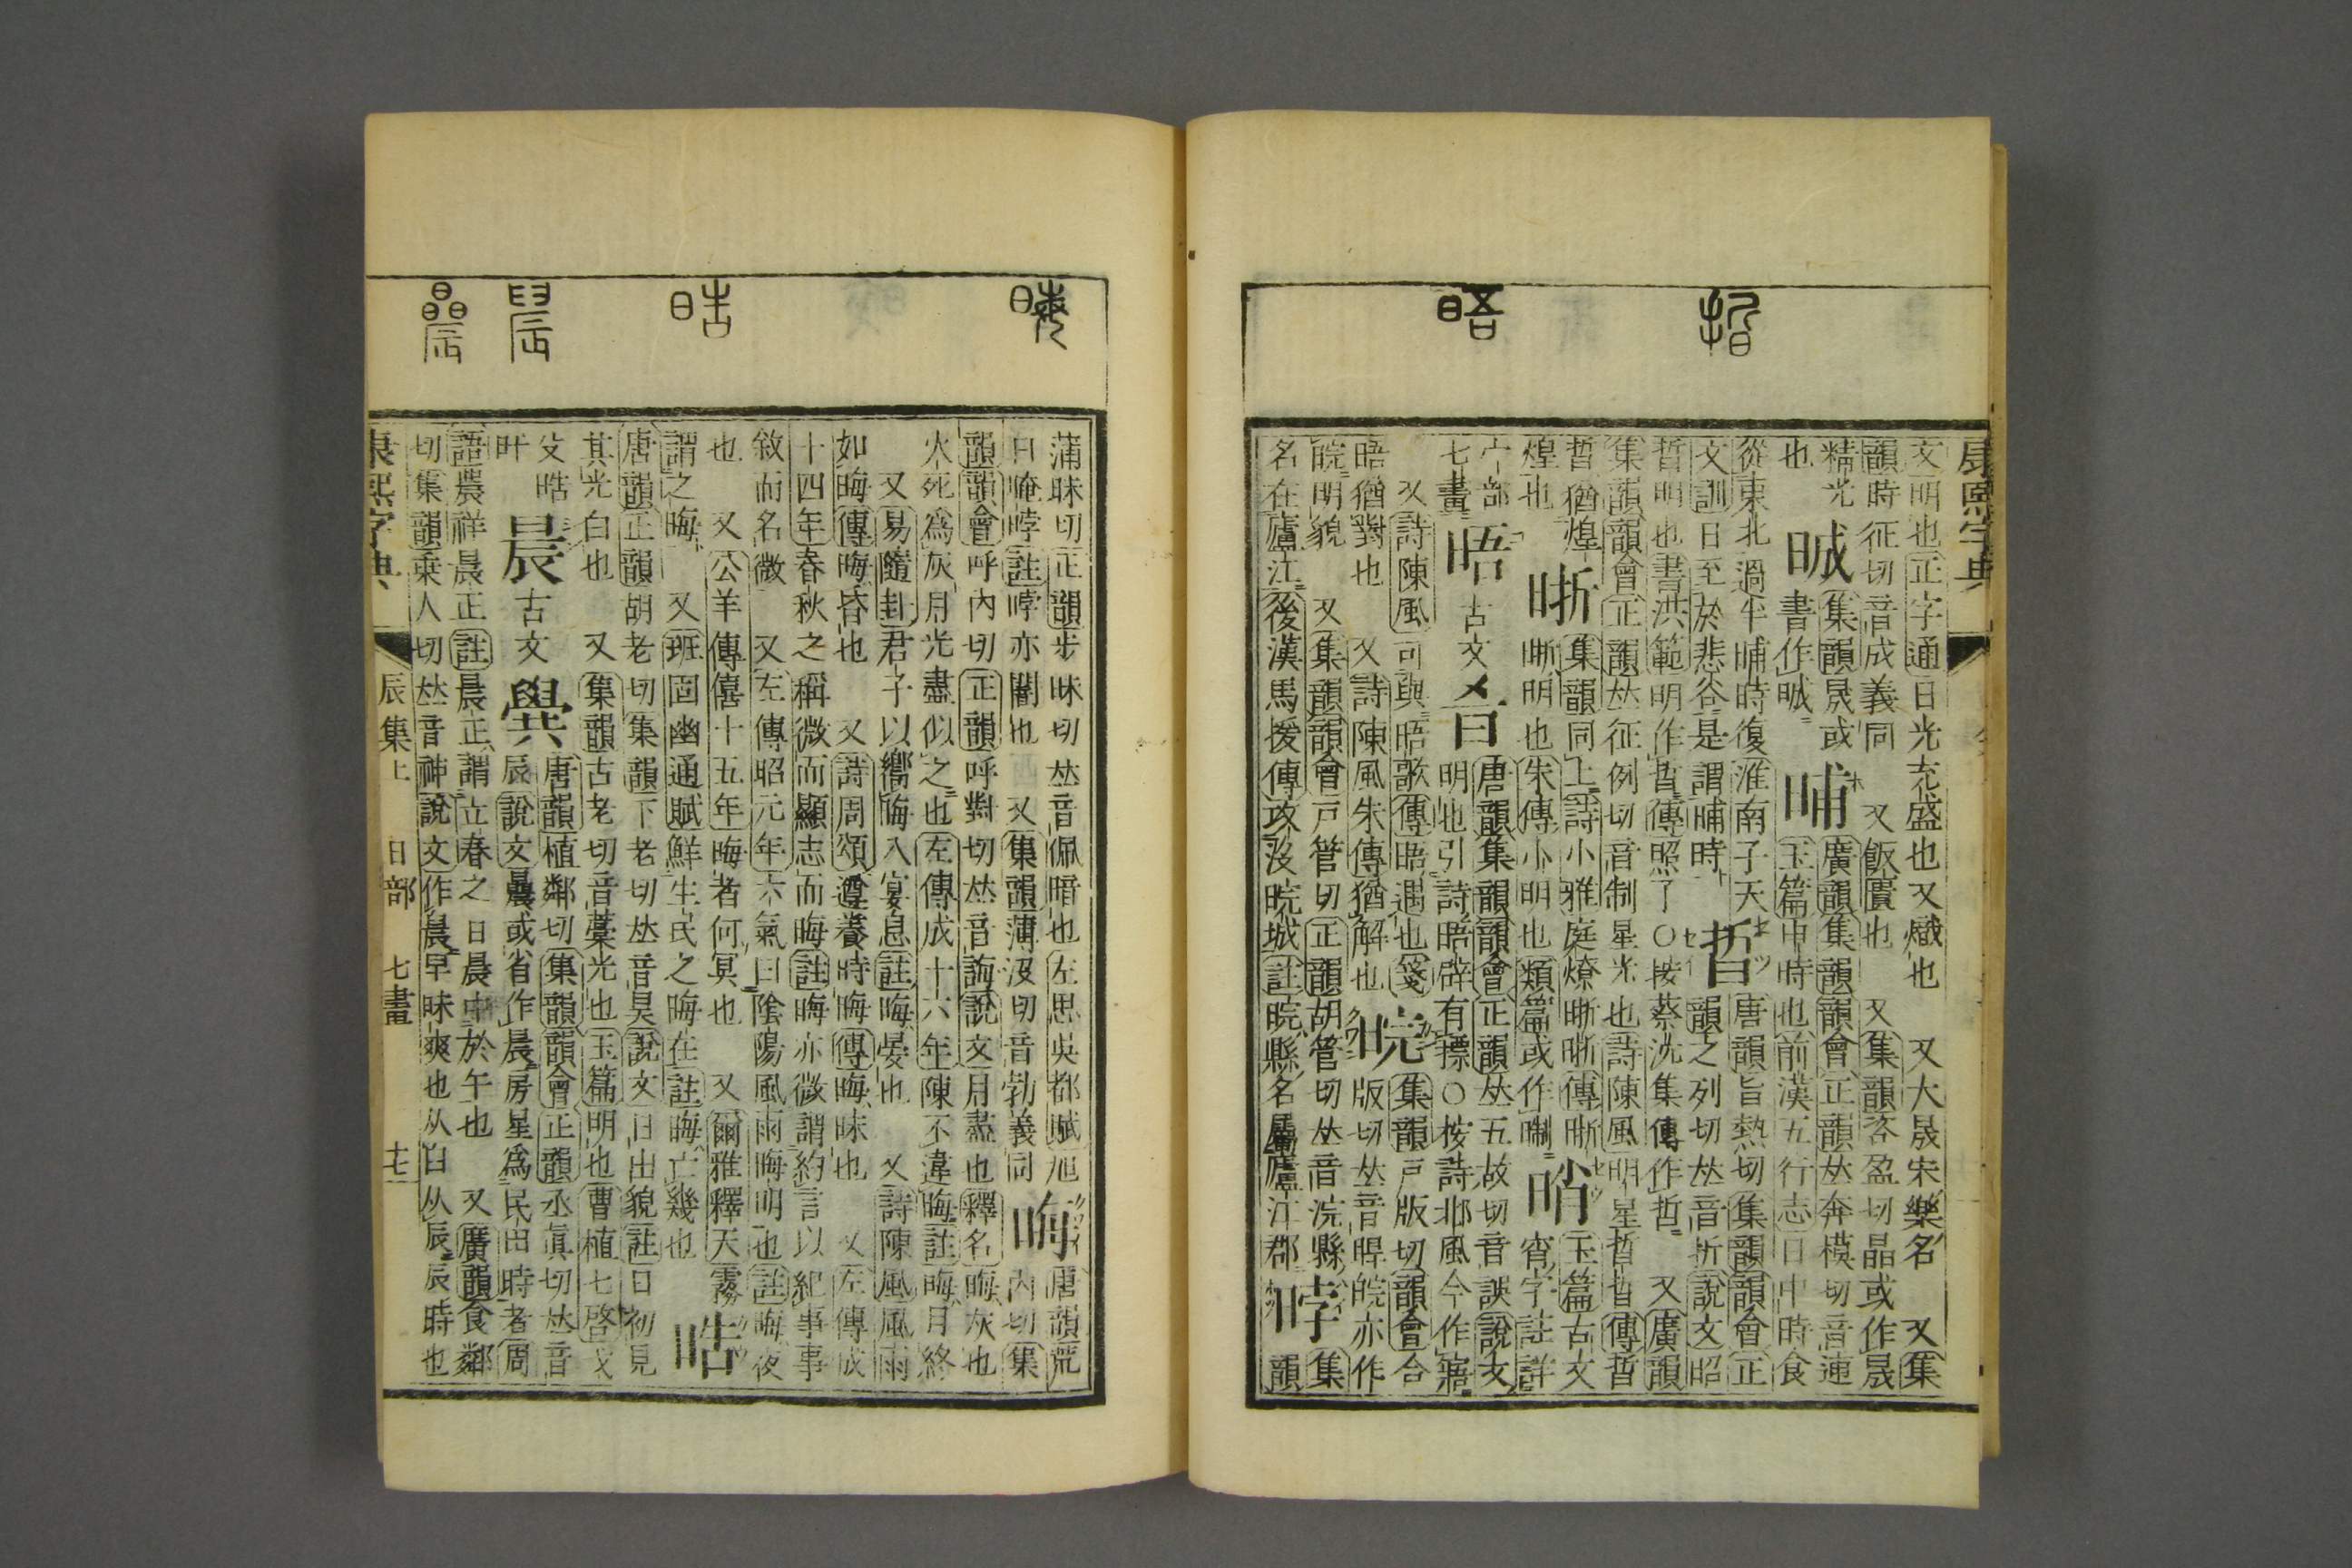 康熙字典
晢
晤
文明也正字通日光充盛也又熾也　又大晟宋樂名　又集
韻時征切音成義同　又飯匱也　又集韻咨盈切晶或作晟
精光
也
晠
集韻晟或
書作晠
晡
廣韻集韻韻會正韻𠀤奔模切音逋
玉篇申時也前漢五行志日中時食
從東北過半晡時復淮南子天
文訓日至於悲谷是謂晡時
晢
唐韻旨熱切集韻韻會正
韻之列切𠀤音折說文昭
晢明也書洪範明作晢傳照了○按蔡沈集傳作哲　又廣韻
集韻韻會正韻𠀤征例切音制星光也詩陳風明星晢晢傳晢
晢猶煌
煌也
晣
集韻同上詩小雅庭燎晣晣傳晣
晣明也朱傳小明也類篇或作
哨
玉篇古文
宵字註詳
宀部
七畫
晤
古文
唐韻集韻韻會正韻𠀤五故切音誤說文
明也引詩晤辟有摽○按詩邶風今作寤
又詩陳風可與晤歌傳晤遇也箋
晤猶對也　又詩陳風朱傳猶解也
晥
集韻戸版切韻會合
版切𠀤音睅皖亦作
晥明貌　又集韻韻會戸管切正韻胡管切𠀤音浣縣
名在廬江後漢馬援傳攻沒晥城註晥縣名屬廬江郡
㫲
集
韻
晦
晧
晨
曟
蒲昧切正韻步昧切𠀤音佩暗也左思吳都賦旭
日晻㫲註㫲亦闇也　又集韻薄沒切音勃義同
晦
唐韻荒
內切集
韻韻會呼內切正韻呼對切𠀤音誨說文月盡也釋名晦灰也
火死爲灰月光盡似之也左傳成十六年陳不違晦註晦月終
又易隨卦君子以嚮晦入宴息註晦晏也　又詩陳風風雨
如晦傳晦昏也　又詩周頌遵養時晦傳晦昧也　又左傳成
十四年春秋之稱微而顯志而晦註晦亦微謂約言以紀事事
敘而名微　又左傳昭元年六氣曰陰陽風雨晦明也註晦夜
也　又公羊傳僖十五年晦者何冥也　又爾雅釋天霧
謂之晦　又班固幽通賦鮮生民之晦在註晦亡幾也
晧
唐韻正韻胡老切集韻下老切𠀤音昊說文日出貌註日初見
其光白也　又集韻古老切音藁光也玉篇明也曹植七啓戌
爻晧
旰
晨
古文
唐韻植鄰切集韻韻會正韻丞眞切𠀤音
辰說文曟或省作晨房星爲民田時者周
語農祥晨正註晨正謂立春之日晨中於午也　又廣韻食鄰
切集韻乗人切𠀤音神說文作晨早昧爽也从臼从辰辰時也
康熙字典　辰集上　日部　七畫　十七